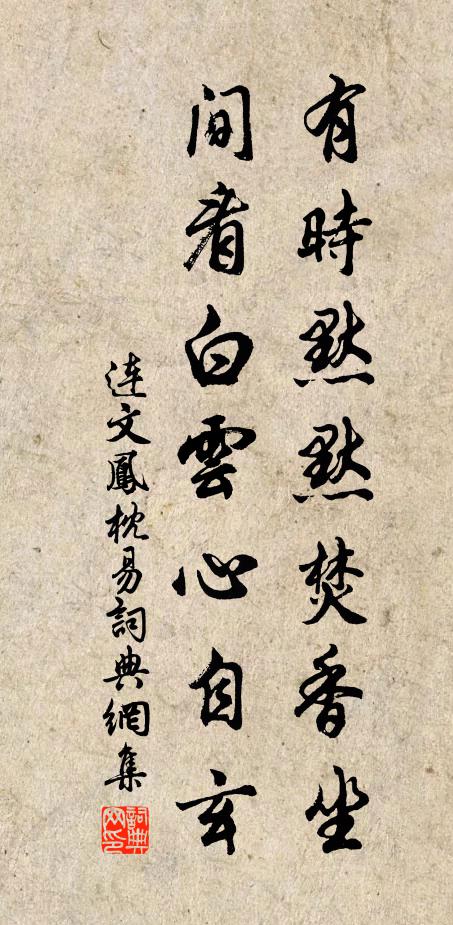 有時默默焚香坐
間看白雲心自玄
連文鳳枕易詞典網集
詞典網印